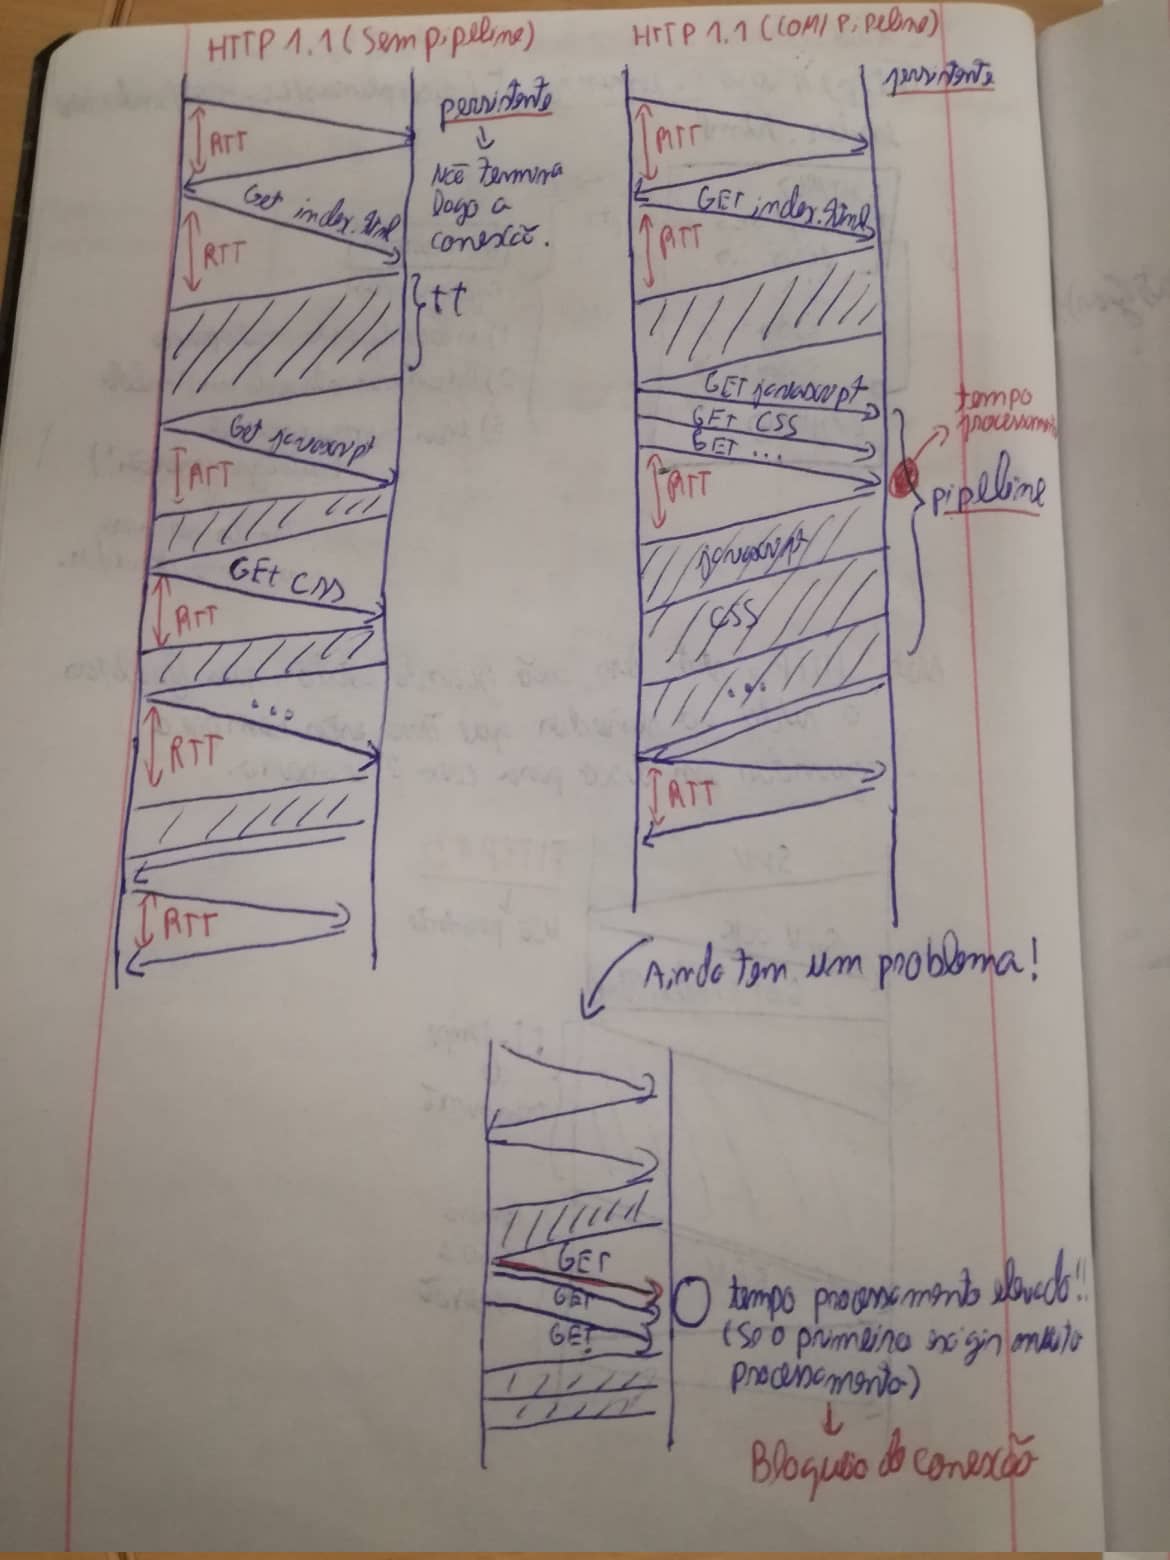 HTTP 1.1 (Sem pipeline)
persistente
Não termina
logo a
conexão.
RTT
Get index.html
RTT
tt
Get javascript
RTT
GEt CSS
RTT
...
RTT
RTT
HTTP 1.1 (COM/ Pipeline)
persistente
RTT
GET index.html
RTT
GET javascript
GET CSS
GET ...
tempo
processamento
pipeline
RTT
javascript
CSS
...
RTT
Ainda tem um problema!
GET
GET
GET
tempo processamento elevado!!
(Se o primeiro exigir muito
processamento)
Bloqueio da conexão